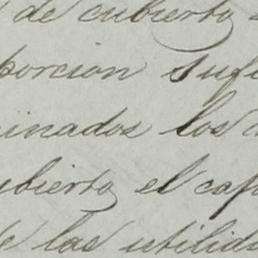 de cubierto
porcion suf
inados los
ubierto el cap
e las utilid